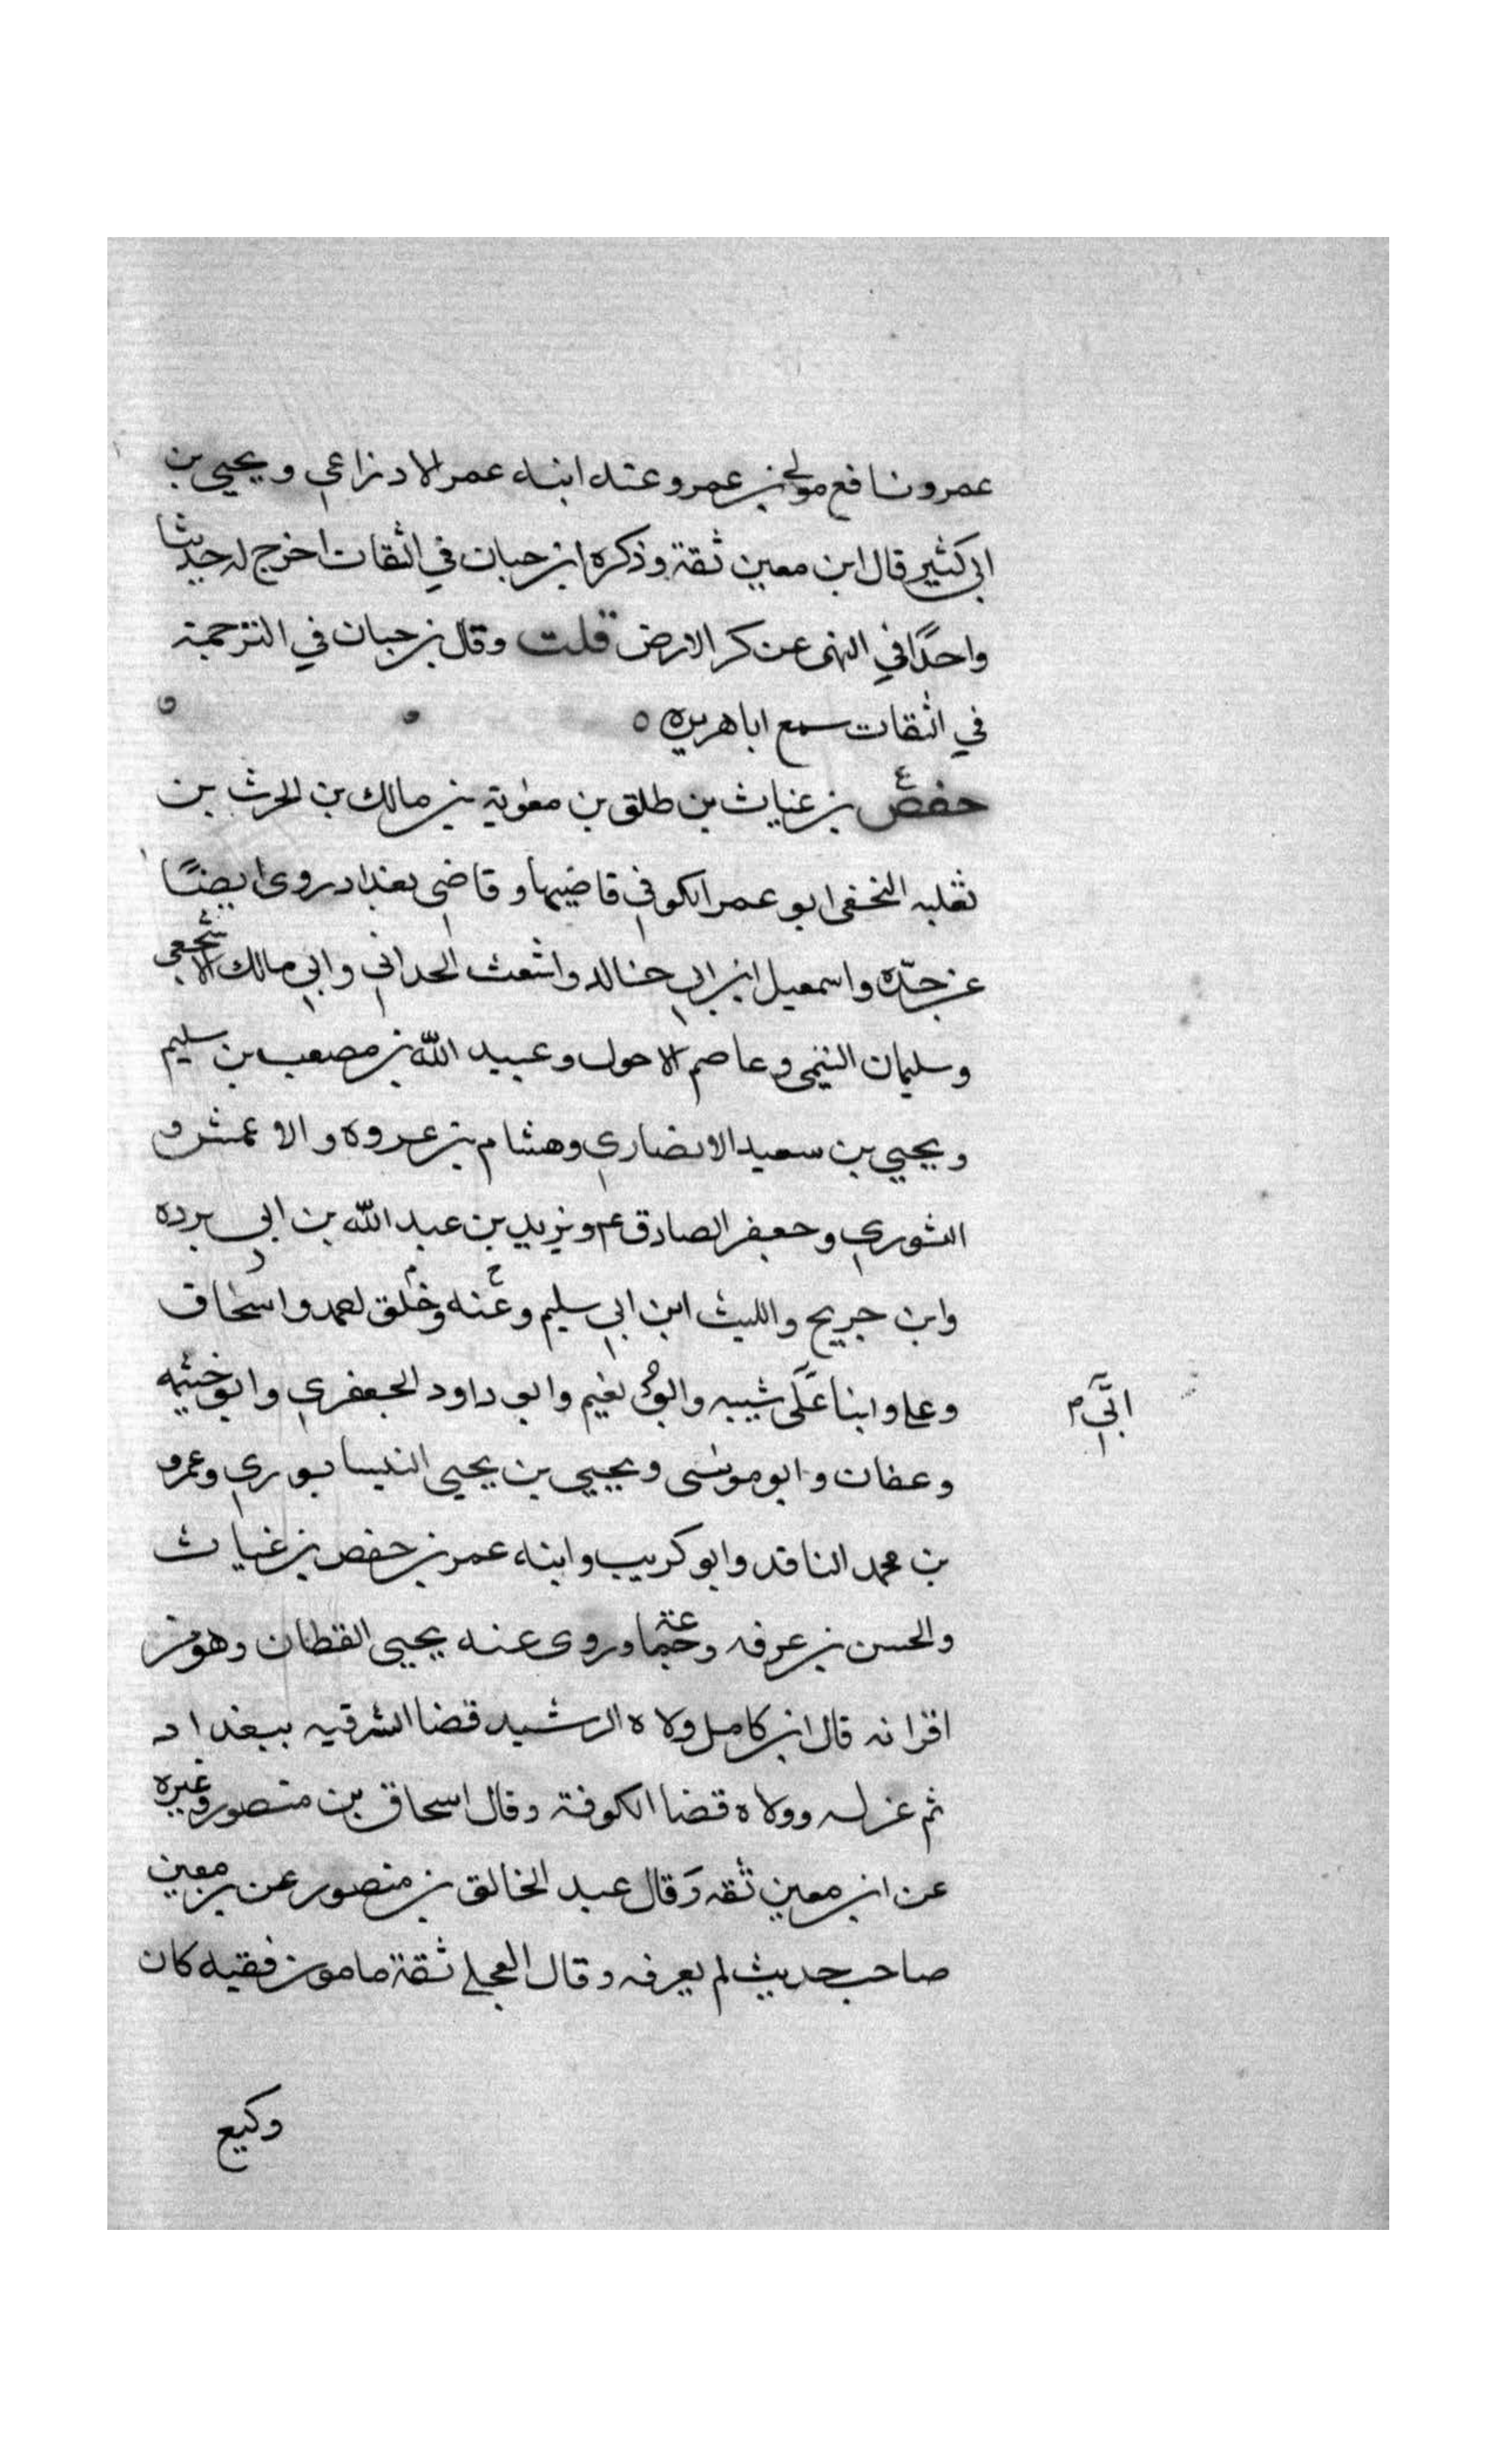 عمرو نافع مولى بن عمرو عنه ابنه عمر الاوزاعي ويحيى بن
ابي كثير قال ابن معين ثقة وذكره ابن حبان في الثقات اخرج له حديثا
واحدًا في النهى عن كر الارض قلت وقال بن حبان في الترجمة
في الثقات سمع ابا هريره ٥
حفص بن غياث بن طلق بن معوية بن مالك بن الحرث بن
ثعلبه النخفى ابو عمر الكوفي قاضيها وقاضى بغداد روى ايضًا
عن جدّه واسمعيل ابن ابي خالد واشعث الحداني وابي مالك الاشجعى
وسليمان التيمى وعاصم الاحول وعبيد الله بن مصعب بن سليم
ويحيى بن سعيد الانصاري وهشام بن عروه والاعمش و
الثوري وجعفر الصادق عم ويزيد بن عبد الله بن ابي برده
وابن جريج والليث ابن ابي سليم وعنه وخلق احمد واسحاق
وعلي وابنا شيبه وابو نعيم وابو داود الجعفري وابو خيثمه
ابي م
وعفان وابو موسى ويحيى بن يحيى النيسابوري وعمرو
بن محمد الناقد وابو كريب وابنه عمر بن حفص بن غياث
والحسن بن عرفه وروى عنه يحيى القطان وهو من
اقرانه قال ابن كامل ولاه الرشيد قضا الشرقيه ببغداد
ثم عزله وولاه قضا الكوفة وقال اسحاق بن منصور وغيره
عن ابن معين ثقه وقال عبد الخالق بن منصور عن بن معين
صاحب حديث لم يعرفه وقال العجلي ثقة مامون فقيه كان
وكيع